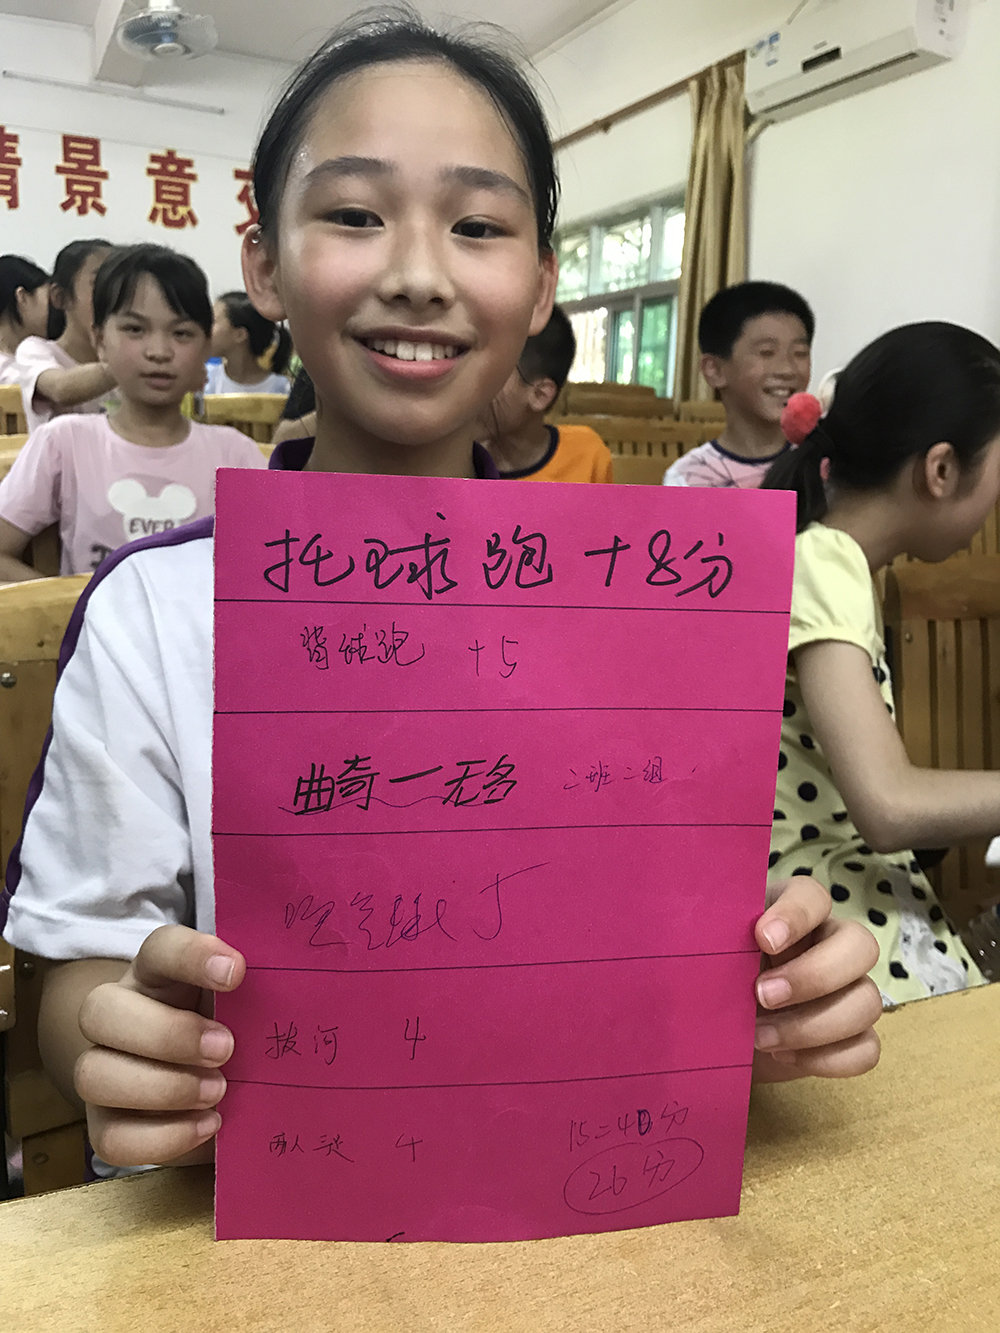 情景意交
EVER
托球跑 +8分
背球跑 +5
曲奇一无名 二班二组.
吹气球 5
拔河 4
两人三足 4
15=40分
26分